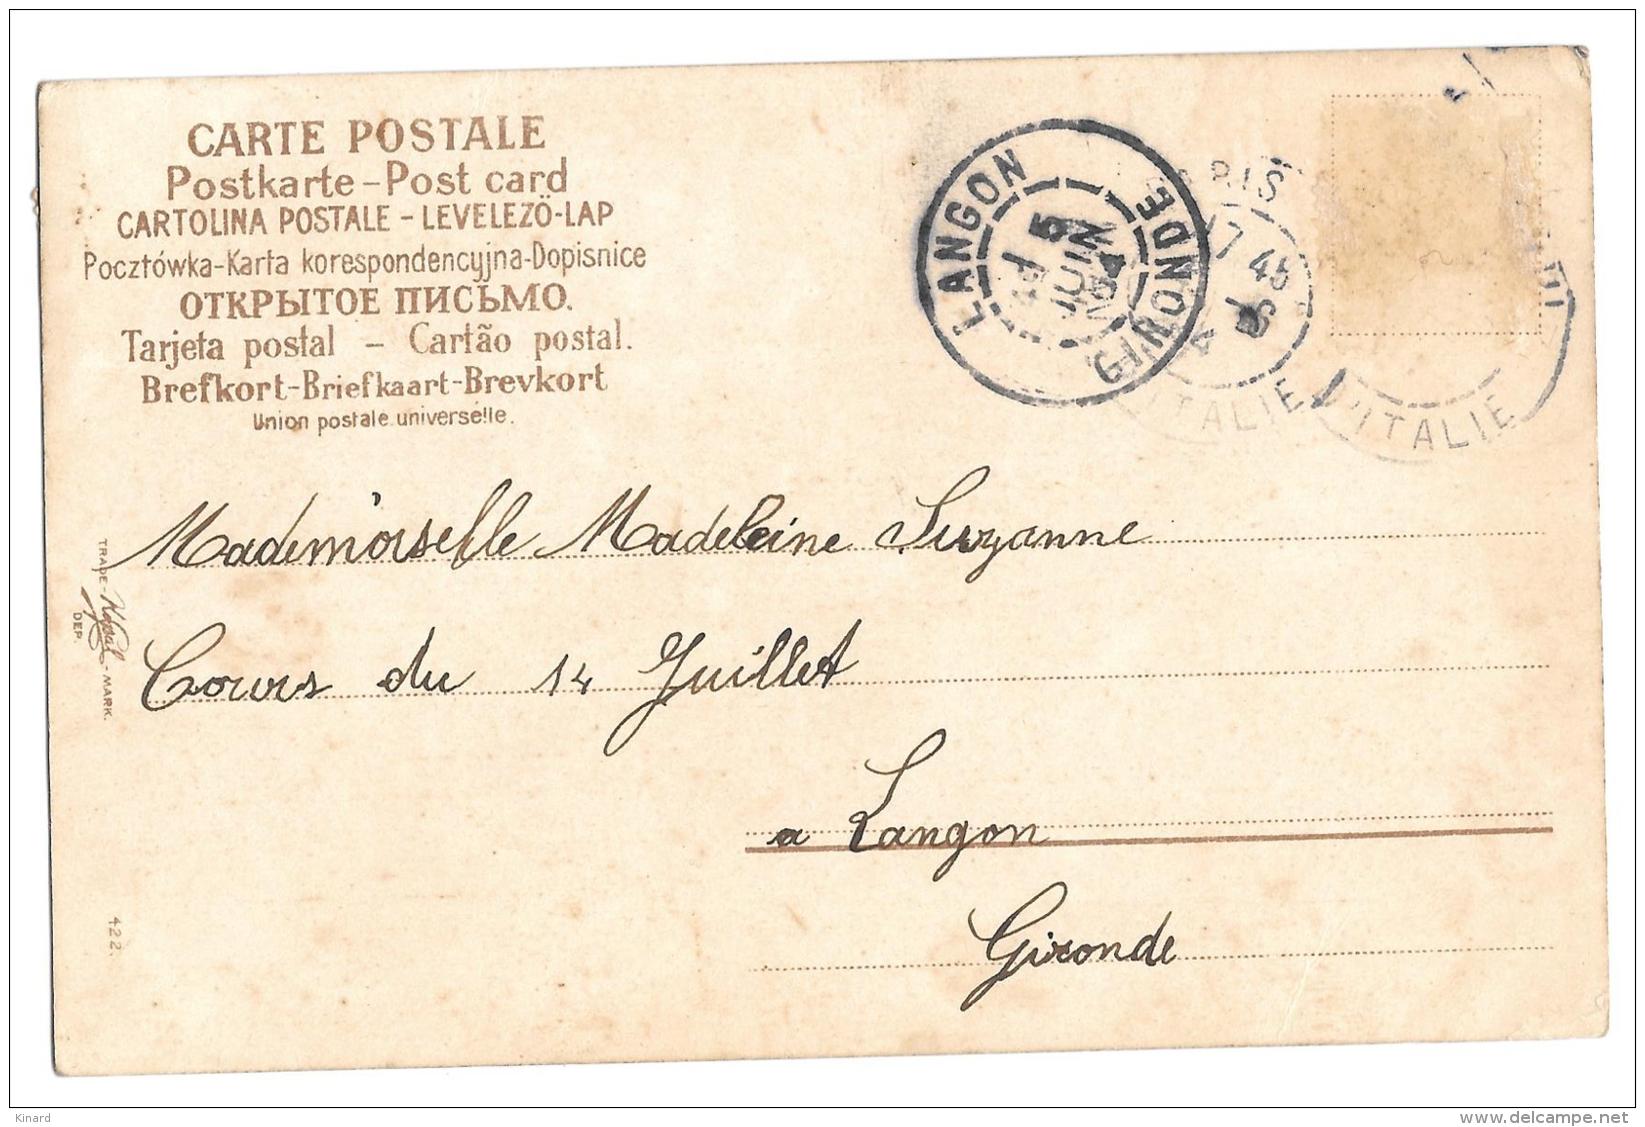 CARTE POSTALE
Postkarte-Post card
CARTOLINA POSTALE - LEVELEZÖ-LAP
Pocztówka-Karta korespondencyjna-Dopisnice
ОТКРЫТОЕ ПИСЬМО.
Tarjeta postal - Cartão postal.
Brefkort-Briefkaart-Brevkort
Union postale universelle.
LANGON
GIRONDE
5
JUIN
04
7 45
D'ITALIE
D'ITALIE
Mademoiselle Madeleine Suzanne
Cours du 14 Juillet
a Langon
Gironde
TRADE - MARK.
DEP.
422.
Kinard
www.delcampe.net